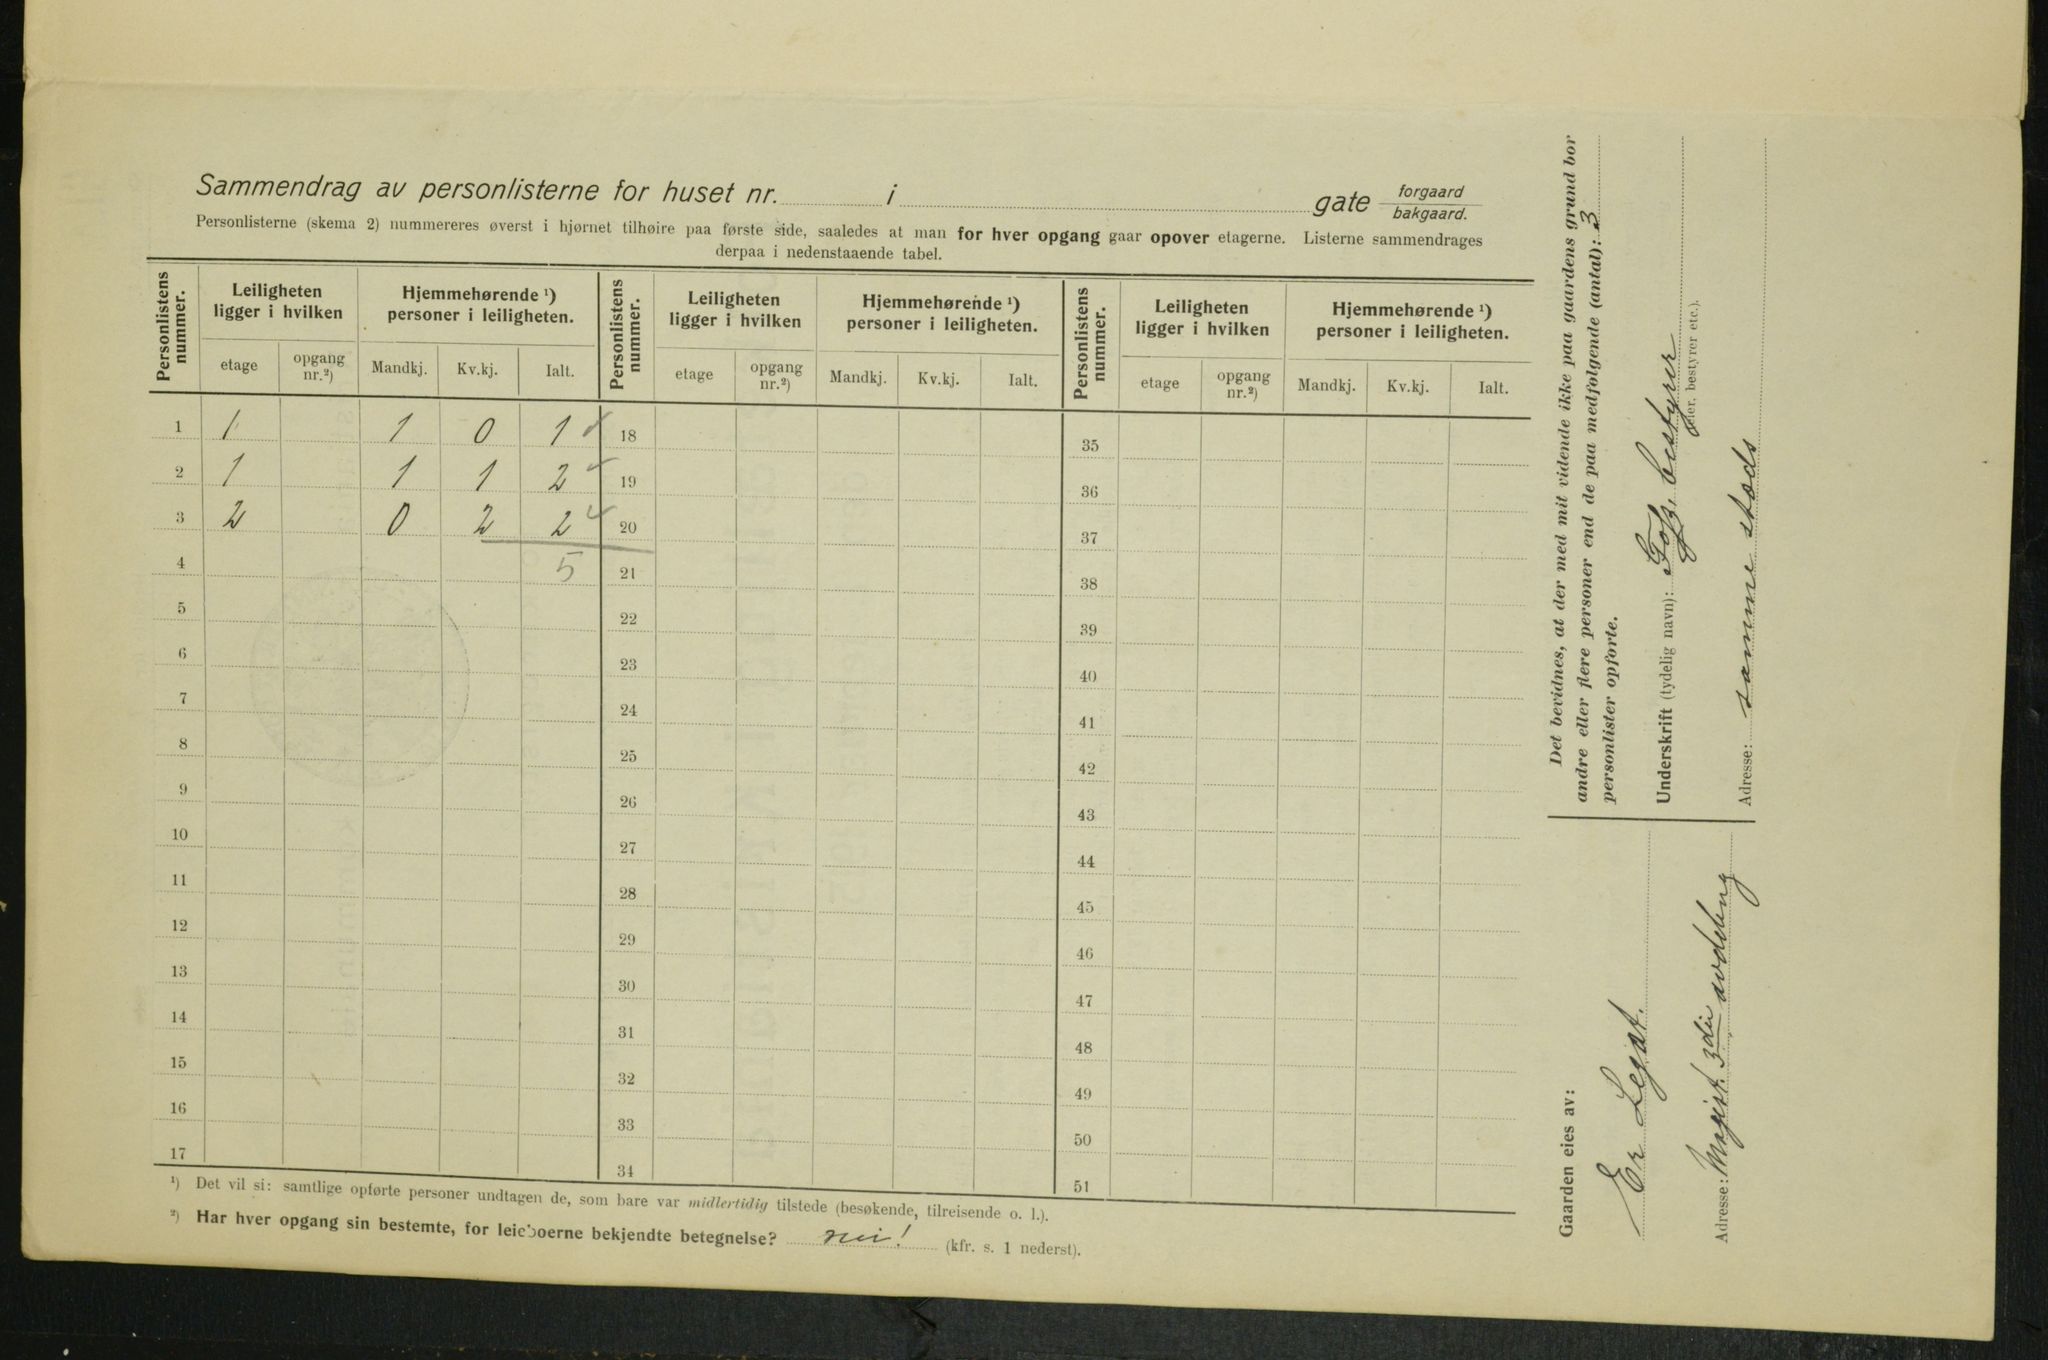 Sammendrag av personlisterne for huset nr. i gate forgaard
bakgaard.
Personlisterne (skema 2) nummereres øverst i hjørnet tilhøire paa første side, saaledes at man for hver opgang gaar opover etagerne. Listerne sammendrages
derpaa i nedenstaaende tabel.
Personlistens nummer. Leiligheten ligger i hvilken Hjemmehørende ¹) personer i leiligheten. Personlistens nummer. Leiligheten ligger i hvilken Hjemmehørende ¹) personer i leiligheten. Personlistens nummer. Leiligheten ligger i hvilken Hjemmehørende ¹) personer i leiligheten.
etage opgang nr.²) Mandkj. Kv.kj. Ialt. etage opgang nr.²) Mandkj. Kv.kj. Ialt. etage opgang nr.²) Mandkj. Kv.kj. Ialt.
1 1 1 0 1 18 35
2 1 1 1 2 19 36
3 2 0 2 2 20 37
4 5 21 38
5 22 39
6 23 40
7 24 41
8 25 42
9 26 43
10 27 44
11 28 45
12 29 46
13 30 47
14 31 48
15 32 49
16 33 50
17 34 51
¹) Det vil si: samtlige opførte personer undtagen de, som bare var midlertidig tilstede (besøkende, tilreisende o. l.).
²) Har hver opgang sin bestemte, for leieboerne bekjendte betegnelse? nei! (kfr. s. 1 nederst).
Det bevidnes, at der med mit vidende ikke paa gaardens grund bor
andre eller flere personer end de paa medfølgende (antal): 3
personlister opførte.
Underskrift (tydelig navn): bestyrer
(eier, bestyrer etc.).
Adresse: samme steds
Gaarden eies av:
Er Legat.
Adresse: Magist. 3die avdeling